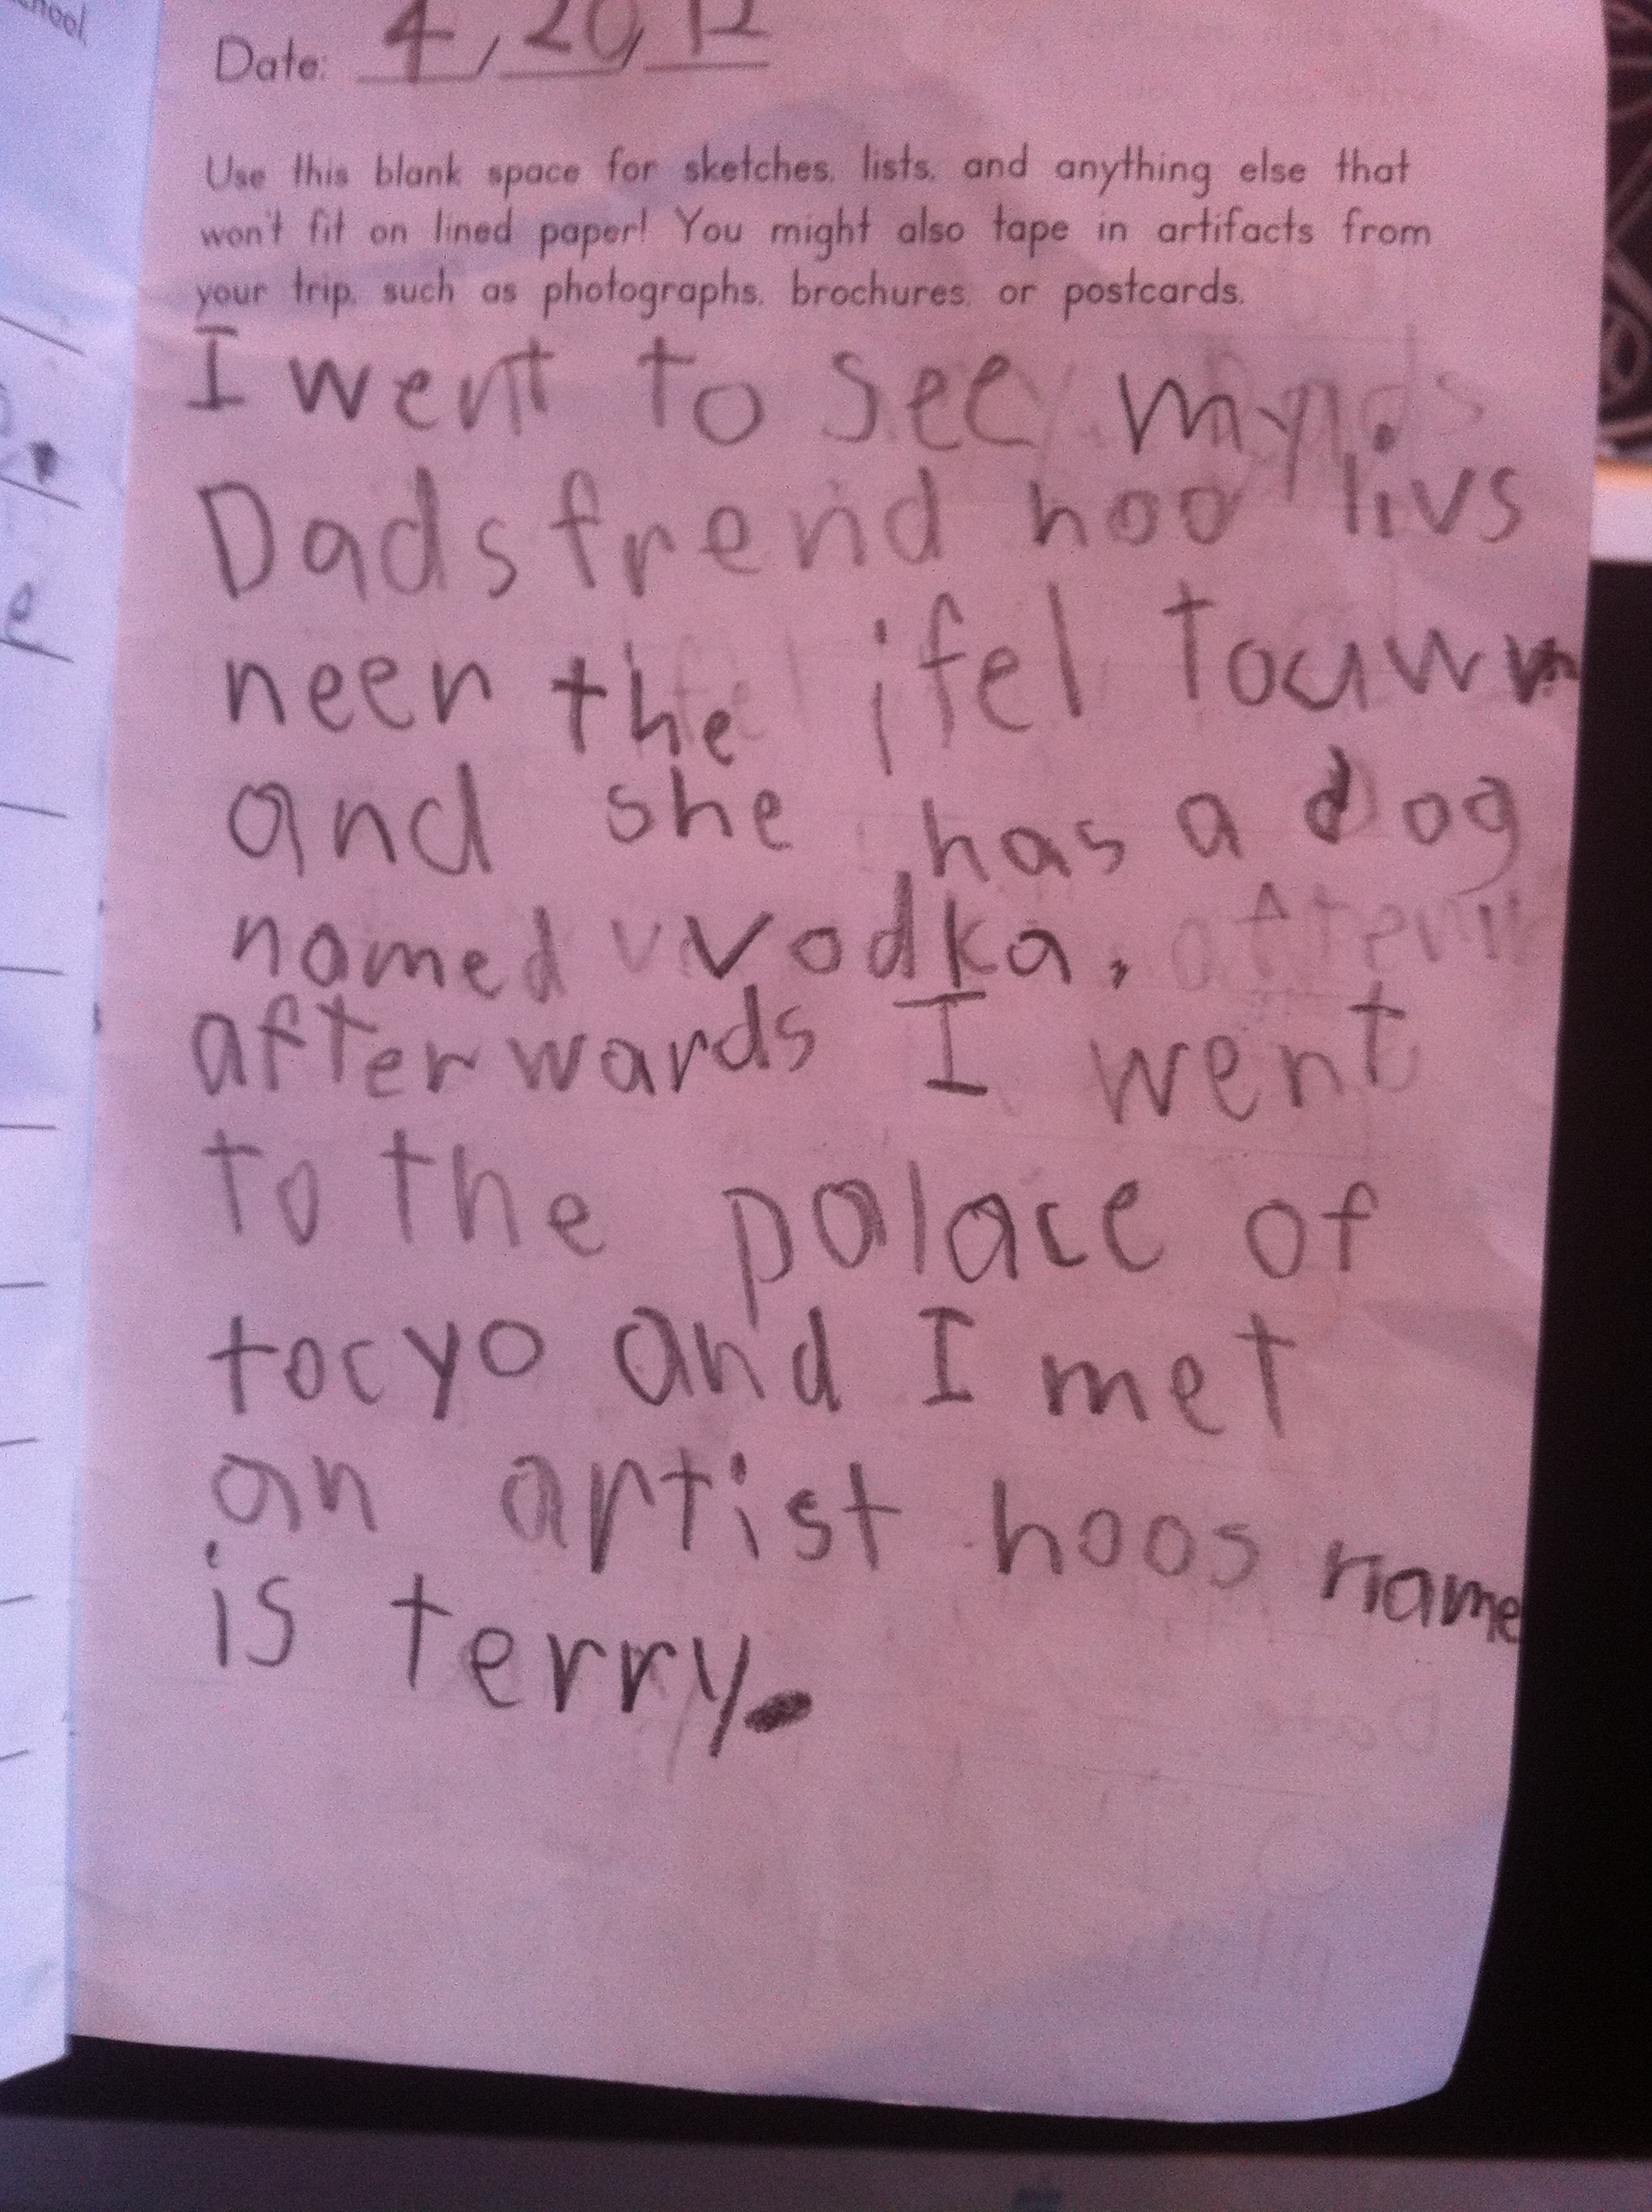 hool.
Date: 4, 20, 12
Use this blank space for sketches, lists, and anything else that
won't fit on lined paper! You might also tape in artifacts from
your trip, such as photographs, brochures, or postcards.
I went to see my
Dads frend hoo livs
neer the ifel touwr
and she has a dog
named vodka.
afterwards I went
to the palace of
tocyo and I met
an artist hoos name
is terry.